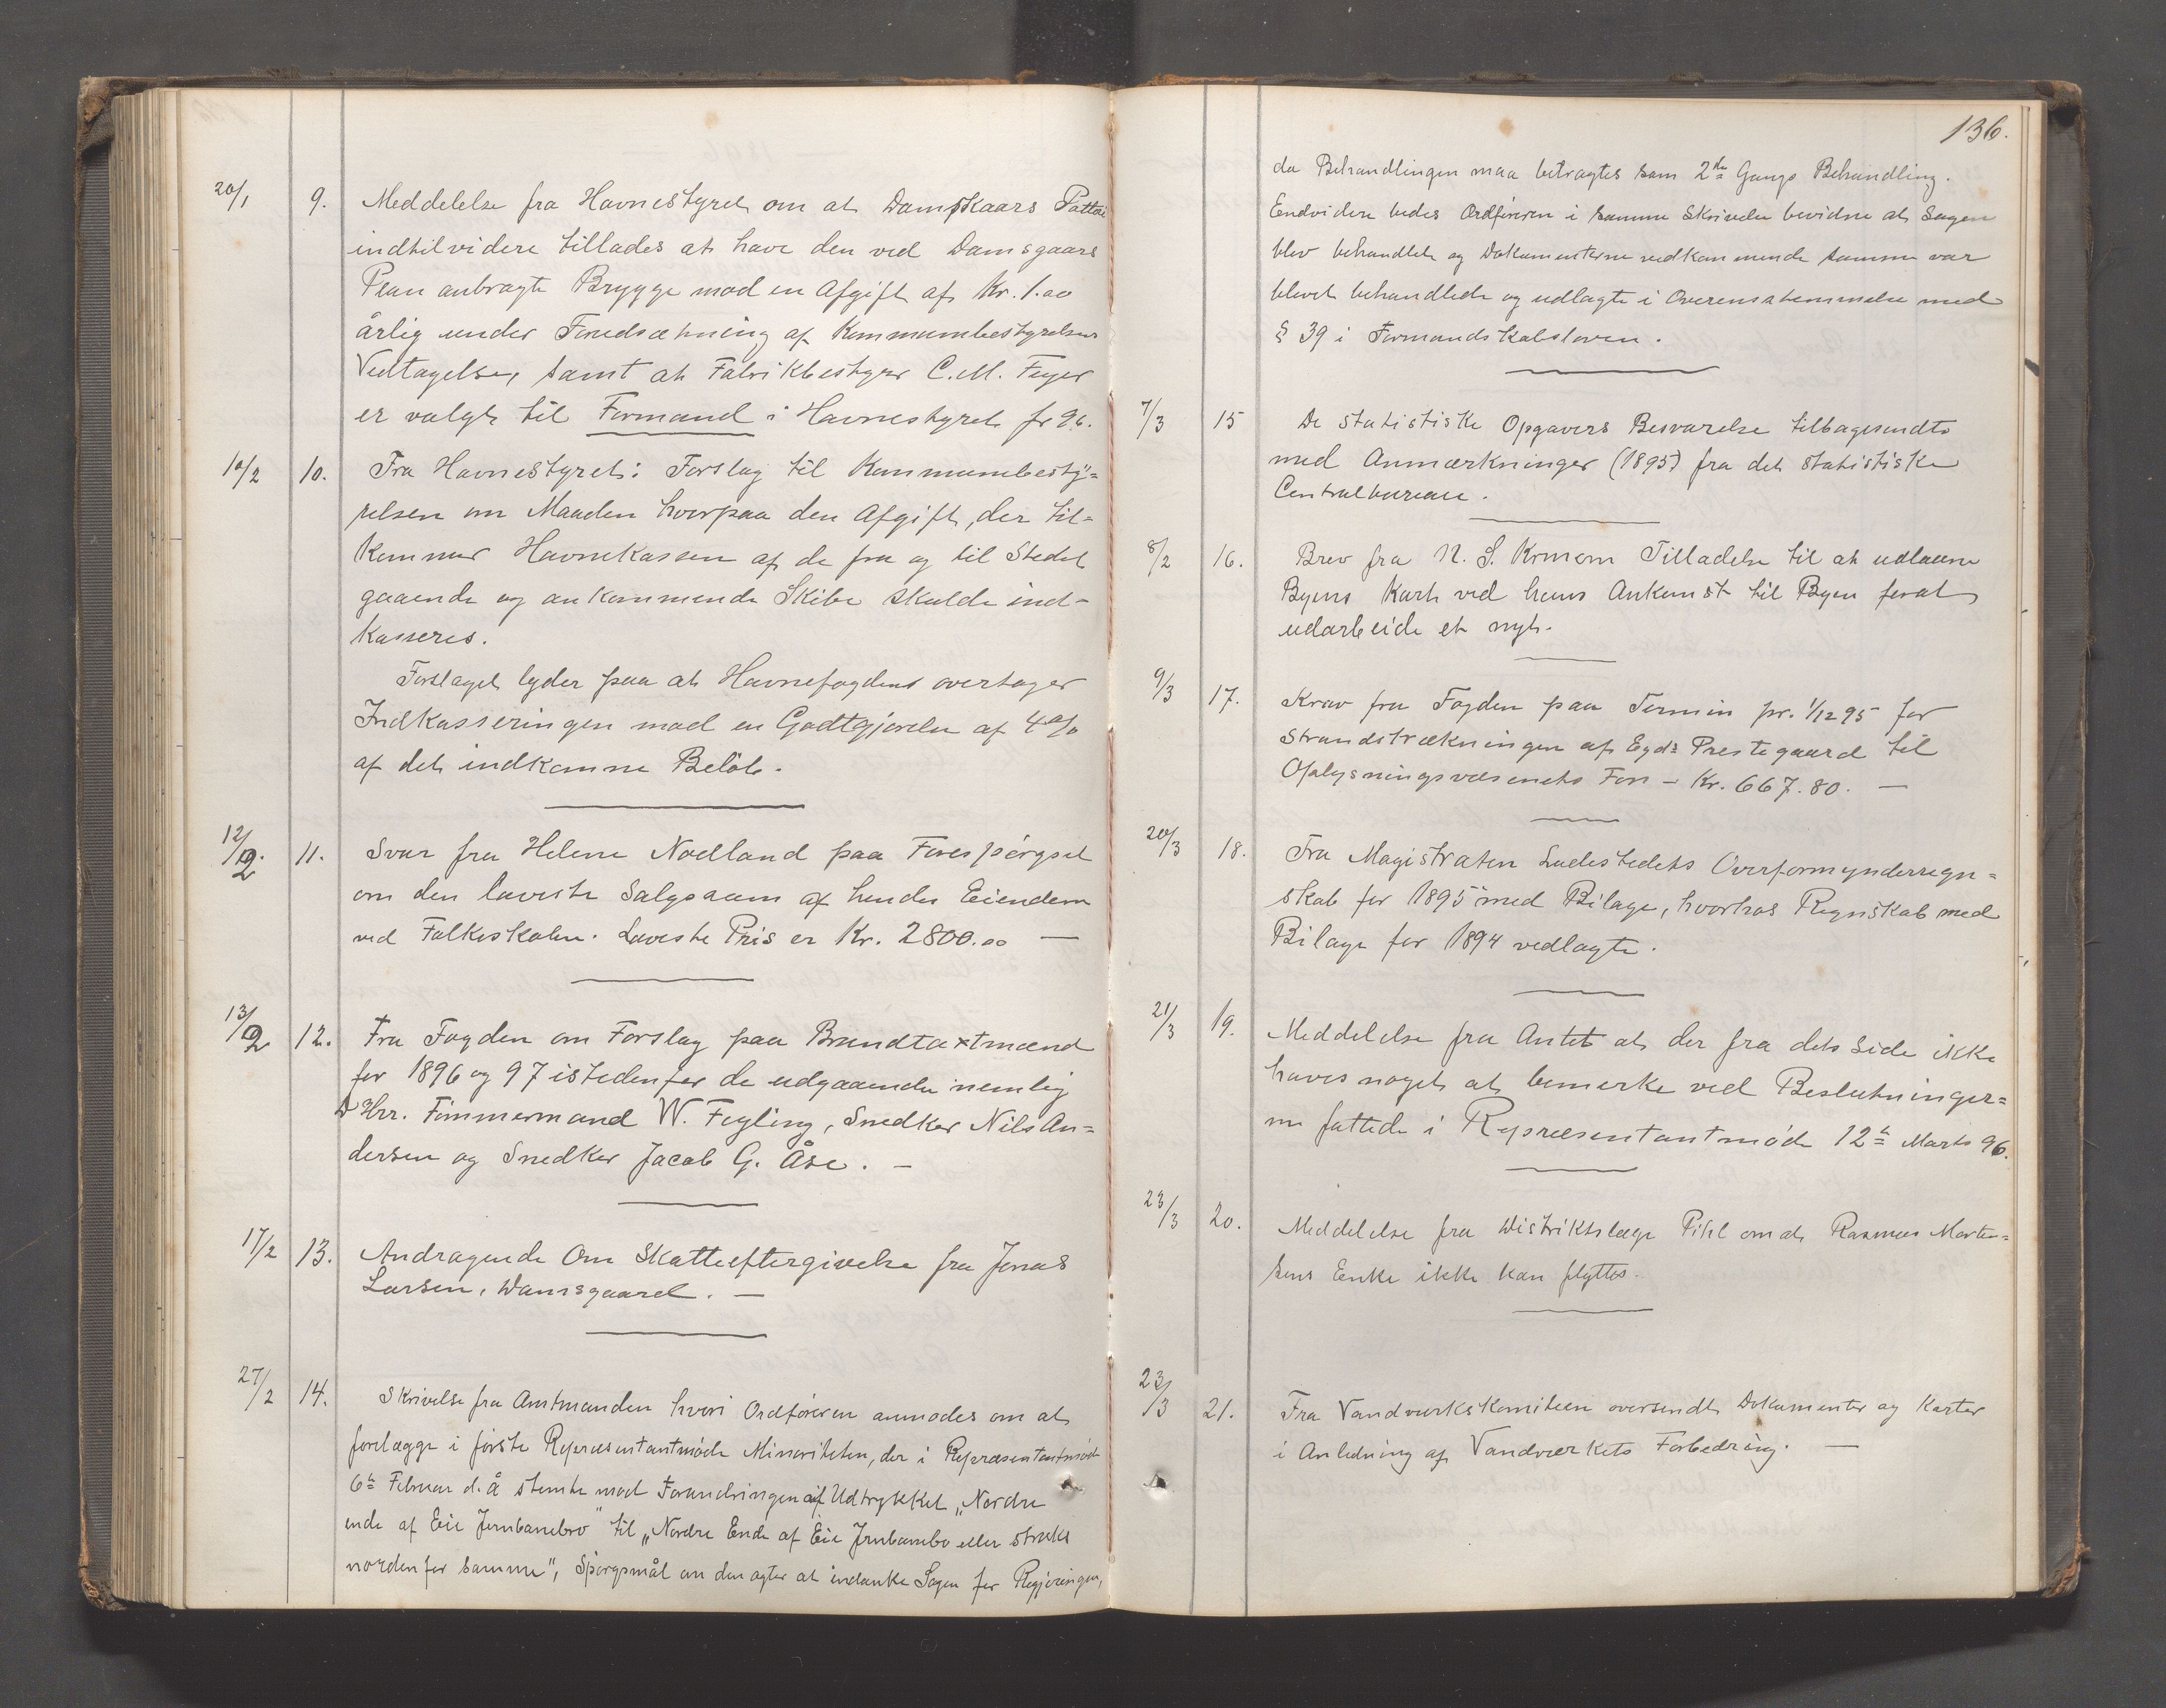 20/1 9. Meddelelse fra Havnestyret om at Damskaars
indtilvidere tillades at have den ved Damsgaars
Plan anbragte Brygge mod en Afgift af Kr. 1.00
årlig under Forudsætning af Kommunbestyrelsens
Vedtagelse, samt at Fabrikbestyrer C. M. Feyer
er valgt til Formand i Havnestyret for 96.
10/2 10. Fra Havnestyret: Forslag til Kommunbesty=
relsen om Maaden hvorpaa den Afgift, der til=
kommer Havnekassen af de fra og til Stedet
gaaende og ankommende Skibe skulde ind-
kasseres.
Forslaget lyder paa at Havnefogden overtager
Indkasseringen mod en Godtgjørelse af 4%
af det indkomne Beløb.
12/2. 11. Svar fra Helene Nodland paa Forespørgsel
om den laveste Salgssum af hendes Eiendom
ved Folkeskolen. Laveste Pris er Kr. 2800.00 —
13/2 12. Fra Fogden om Forslag paa Brandtaxtmænd
for 1896 og 97 istedenfor de udgaaende nemlig
D'Hrr. Tømmermand W. Fegling, Snedker Nils An=
dersen og Snedker Jacob G. Åse. —
17/2 13. Andragende Om Skatteeftergivelse fra Jonas
Larsen, Damsgaard. —
27/2 14. Skrivelse fra Amtmanden hvori Ordføreren anmodes om at
forelægge i første Repræsentantmøde Minoriteten, der i Repræsentantmøde
6te Februar d. å stemte mod Forandringen af Udtrykket „Nordre
ende af Eie Jernbanebro" til „Nordre Ende af Eie Jernbanebro eller straks
nordenfor samme", Spørgsmål om den agter at indanke Sagen for Regjeringen,
136.
da Behandlingen maa betragtes som 2den Gangs Behandling.
Endvidere bedes Ordføreren i samme Skrivelse bevidne at Sagen
blev behandlet og Dokumenterne vedkommende samme var
blevet behandlede og udlagte i Overensstemmelse med
§ 39 i Formandskabsloven.
7/3 15 De statistiske Opgavers Besvarelse tilbagesendte
med Anmærkninger (1895) fra det statistiske
Centralbureau.
8/2 16. Brev fra N. S. Krum om Tilladelse til at udlaane
Byens Kart ved hans Ankomst til Byen forat
udarbeide et nyt.
9/3 17. Krav fra Fogden paa Termin pr. 1/12 95 for
Strandstrækningen af Egds Prestegaard til
Oplysningsvæsenets Fon — Kr. 667.80. —
20/3 18. Fra Magistraten Ladestedets Overformynderregn=
skab for 1895 med Bilage, hvorhos Regnskab med
Bilage for 1894 vedlagte.
21/3 19. Meddelelse fra Amtet at der fra dets Side ikke
haves noget at bemerke ved Beslutninger=
ne fattede i Repræsentantmøde 12te Marts 96.
23/3 20. Meddelelse fra Distriktslæge Pihl om at Rasmus Morten=
sens Enke ikke kan flyttes.
23/3 21. Fra Vandværkskomiteen oversendt Dokumenter og Karter
i Anledning af Vandværkets Forbedring. —